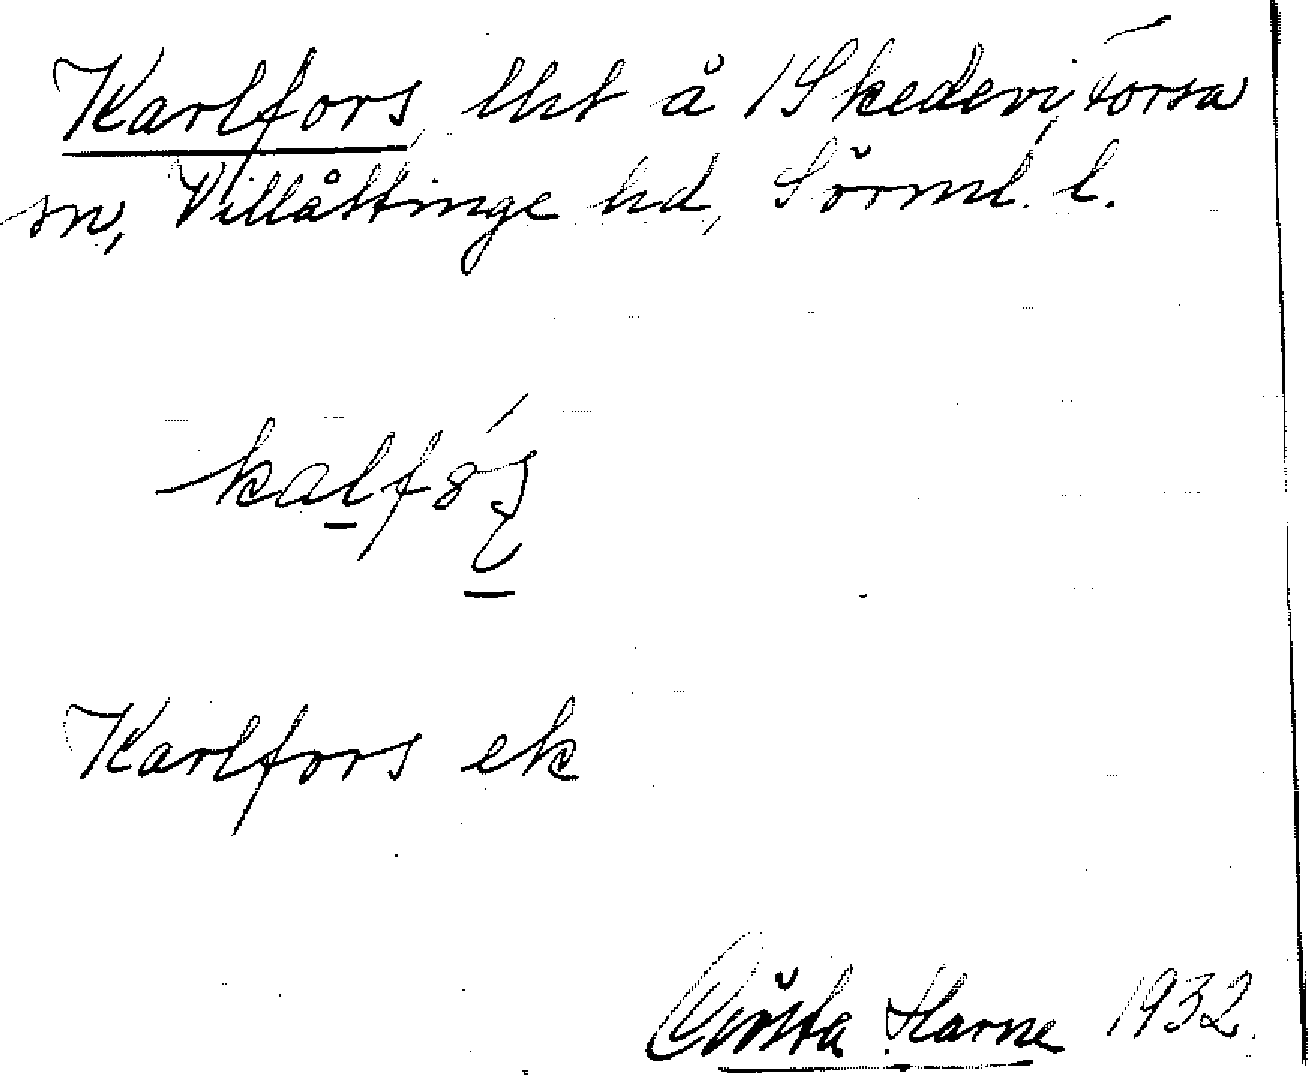 Karlfors, lht å 1 Skedevi, Forssa
sn, Villåttinge hd, Sörml. l.
kalfó̤ʂ
Karlfors ek
Gösta Harne 1932